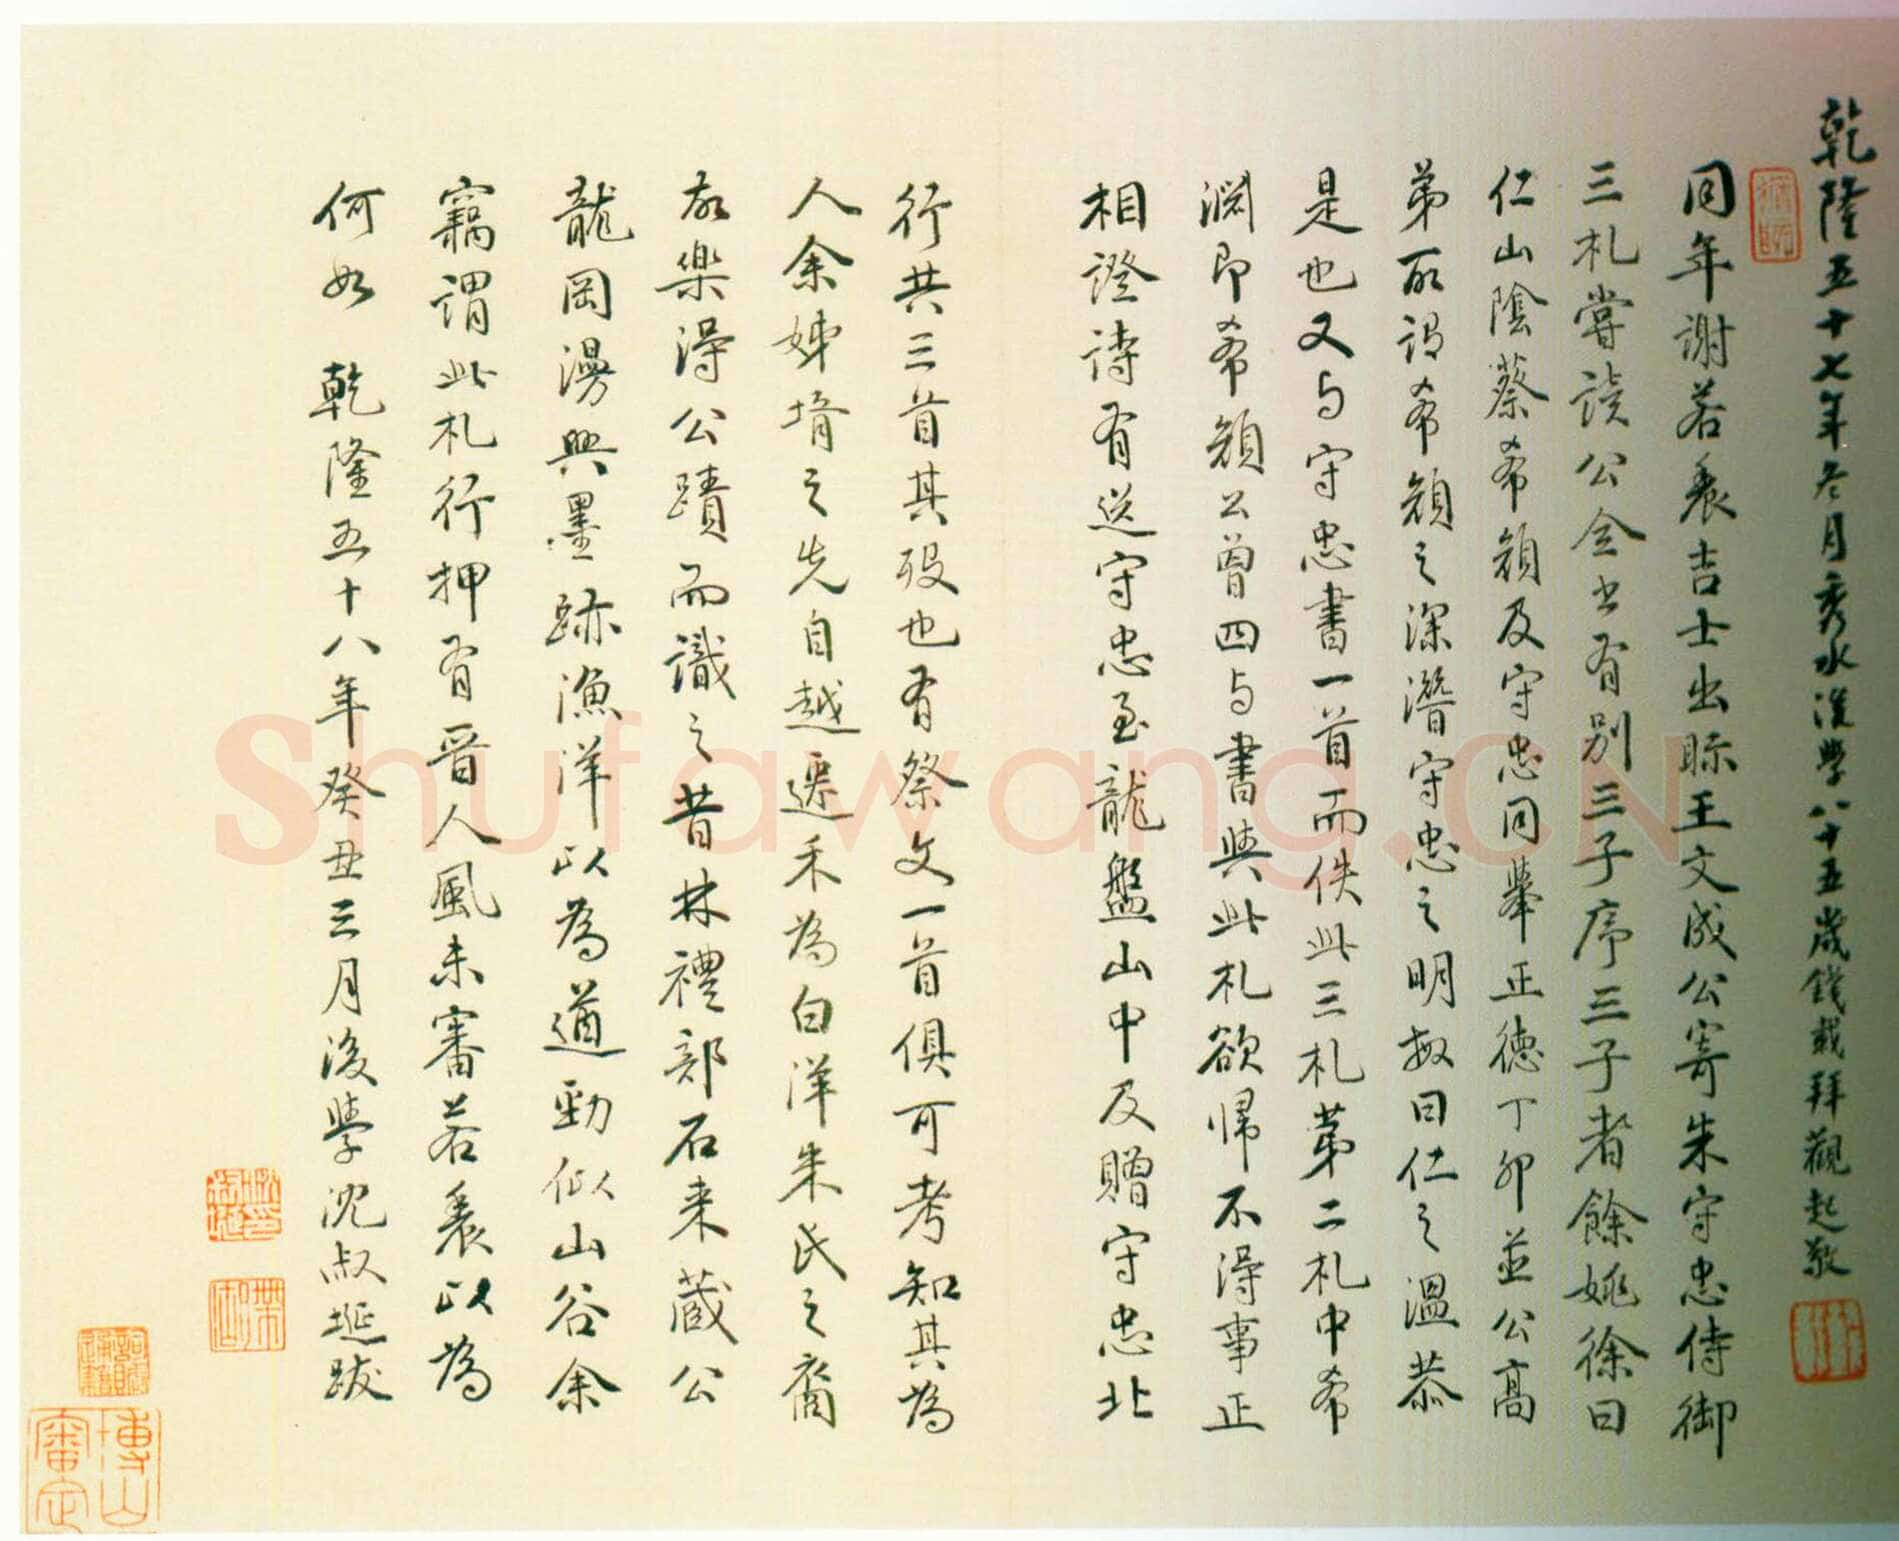 乾隆五十七年冬月秀水後學八十五歲錢載拜觀起敬
同年謝若農吉士出眎王文成公寄朱守忠侍御
三札嘗讀公全書有別三子序三子者餘姚徐曰
仁山陰蔡希顏及守忠同舉正德丁卯並公高
弟所謂希顏之深潛守忠之明敏曰仁之溫恭
是也又与守忠書一首而佚此三札第二札中希
淵即希顏公曾四与書與此札欲歸不得事正
相證詩有送守忠至龍盤山中及贈守忠北
行共三首其歿也有祭文一首俱可考知其為
人余姊壻之先自越遷禾為白洋朱氏之裔
故樂得公蹟而識之昔林禮部石來藏公
龍岡漫興墨跡漁洋以為遒勁似山谷余
竊謂此札行押有晉人風未審若農以為
何如 乾隆五十八年癸丑三月後學沈叔埏跋
博山審定
Shufawang.CN